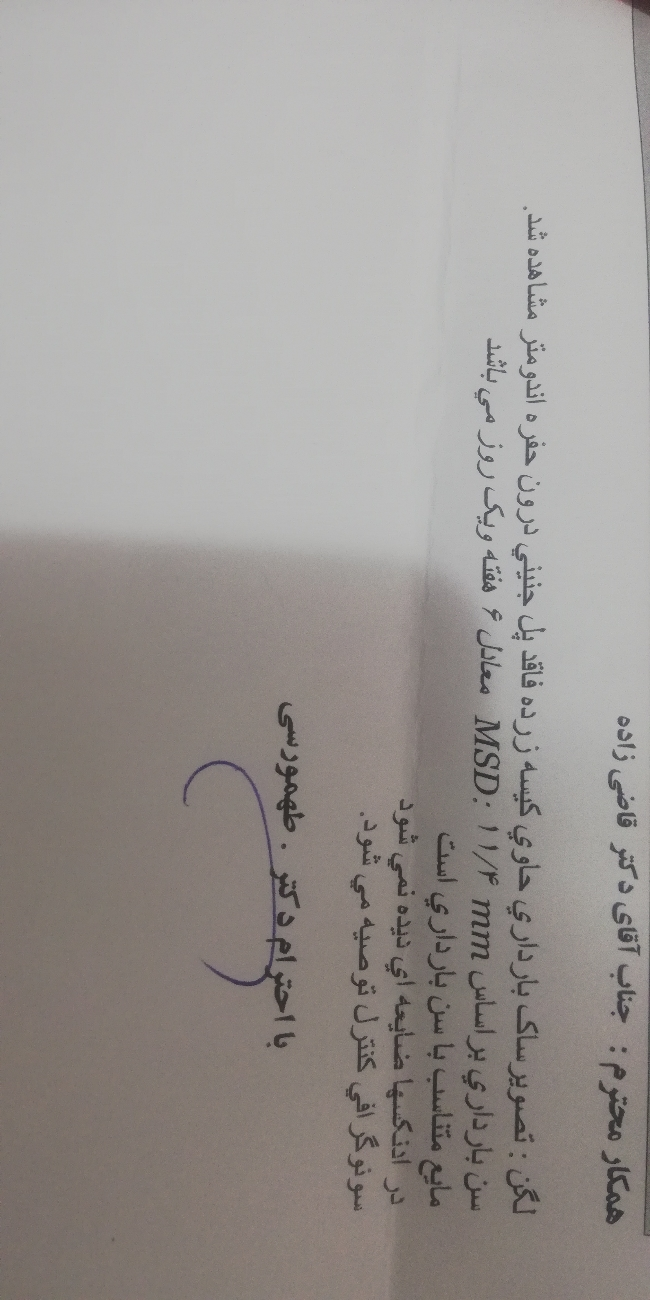 همکار محترم : جناب آقای دکتر قاضی زاده
لگن : تصویر ساک بارداري حاوي کیسه زرده فاقد پل جنیني درون حفره اندومتر مشاهده شد.
سن بارداري بر اساس MSD: ۱۱/۴ mm معادل ۶ هفته ویک روز مي باشد
مایع متناسب با سن بارداري است
در ادنکسها ضایعه اي دیده نمي شود
سونوگرافي کنترل توصیه مي شود.
با احترام دکتر . طهمورسی